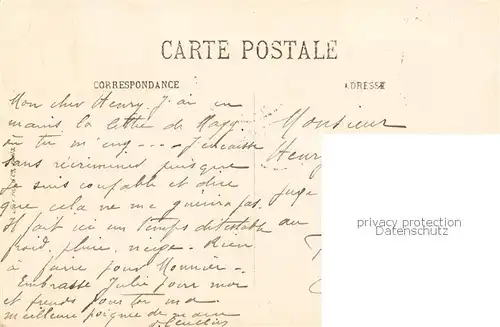 CARTE POSTALE
CORRESPONDANCE
ADRESSE
Mon cher Henry. J'ai en
mains la lettre de Magg.
où tu m'eng --- J'encaisse
sans récriminer puisque
je suis coupable et dire
que cela ne me guérira pas.
Il fait ici un temps détestable
froid, pluie, neige. Rien
à faire pour Monnier.
Embrasse Julie pour moi
et prends pour toi ma
meilleure poignée de main
Monsieur
Henry
juge
au
privacy protection
Datenschutz